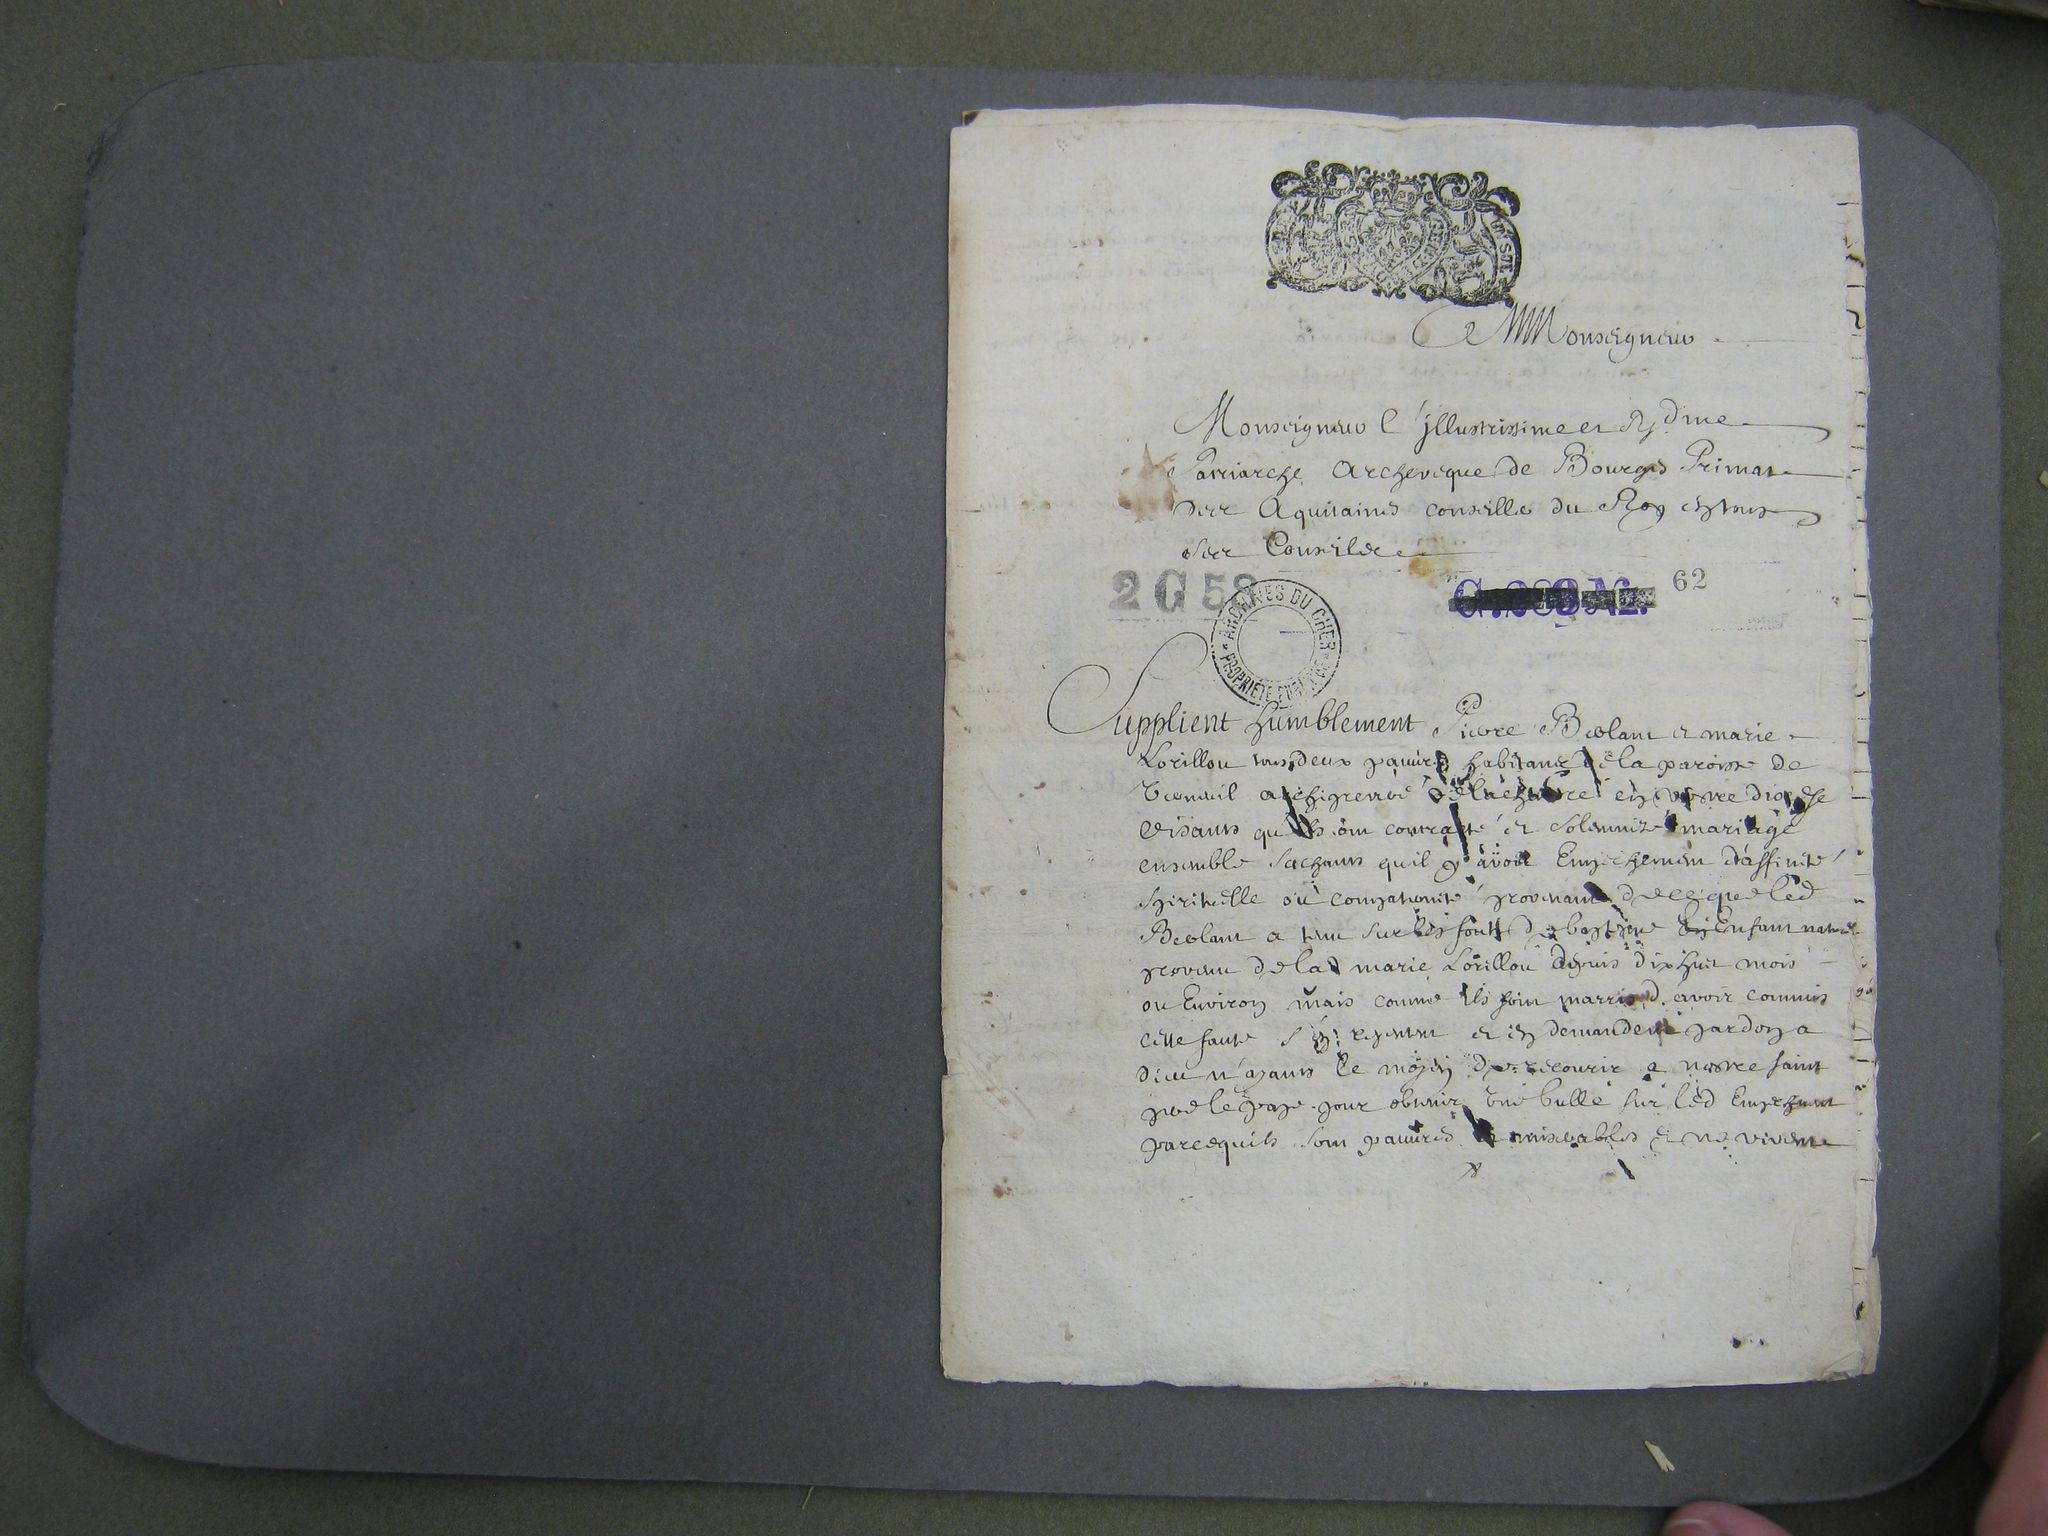 A Monseigneur
Monseigneur l'jllustrissime et R dme
Patriarche Archeveque de Bourges Primat
des Aquitaines conseille du Roy en tous
ses Conseiles
2 G 53
62
ARCHIVES DU CHER
PROPRIÉTÉ PUBLIQUE
Supplient humblement Pierre et marie
Lorillou tous deux pauures habitans de la paroisse de
en vostre diocese
disants qu'ils ont contracté et solemnizé mariage
ensemble sachans quil y avoit Empechement d'affinité
spirituelle ou compaternité provenant de ce que led
a tenu sur les fonts de baptême un Enfant naturel
provenu de lad marie Lorillou depuis dixhuit mois
ou Environ mais comme ils sont marris d'avoir commis
cette faute s'en repentent et en demandent pardon a
dieu n'ayants le moyen de recourir a nostre saint
pere le pape pour obtenir une bulle sur led Empechement
parcequils sont pauures et miserables et ne vivent